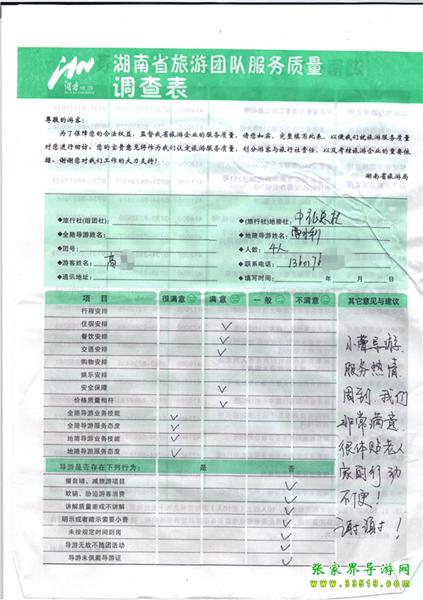 湖南省旅游团队服务质量
调查表
尊敬的游客:
为了保障您的合法权益，监督我省旅游企业的服务质量，请您如实、完整填写此表，以便我们就旅游服务质量
对您进行回访。您的宝贵意见将作为我们认定旅游服务质量、划分游客与旅行社责任、以及考核旅游企业的重要依
据。谢谢您对我们工作的大力支持!
湖南省旅游局
◆旅行社(组团社): ◆(旅行社)地接社:
◆全陪导游姓名: ◆地陪导游姓名:
◆团号: ◆人数: 4人
◆游客姓名: ◆联系电话: 136017
◆通讯地址: ◆填写时间: 年 月 日
项 目 很满意 满 意 一 般 不满意 其它意见与建议
行程安排
住宿安排 ✓
餐饮安排 ✓
交通安排 ✓
购物安排
娱乐安排
安全保障 ✓
价格质量相符 ✓
全陪导游业务技能 ✓
全陪导游服务态度 ✓
地陪导游业务技能 ✓
地陪导游服务态度 ✓
导游是否存在下列行为: 是 否
擅自增、减旅游项目 ✓
欺骗、胁迫游客消费 ✓
讲解质量差或不讲解 ✓
明示或者暗示索要小费 ✓
未按规定时间到岗 ✓
导游无故不随团活动 ✓
导游未佩戴导游证 ✓
小曹导游
服务热情
周到，我们
非常满意
很体贴老人
家因行动
不便!
谢谢!
张家界导游网
www.33519.com